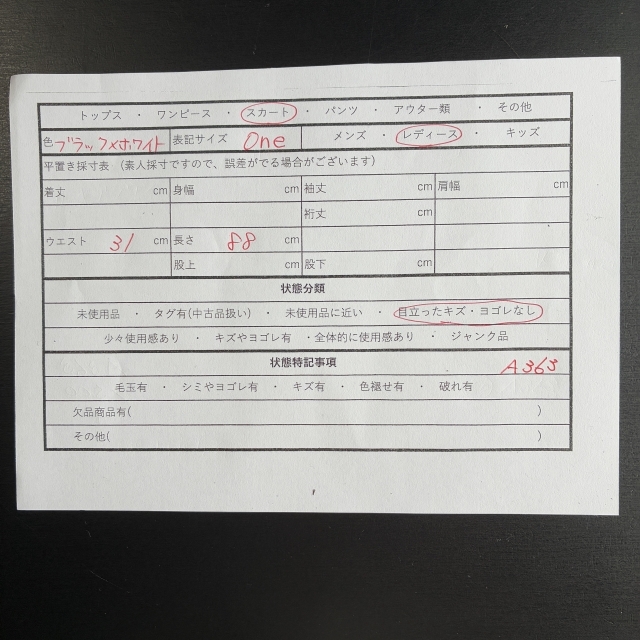 トップス ・ ワンピース ・ スカート ・ パンツ ・ アウター類 ・ その他
色 ブラック×ホワイト 表記サイズ One メンズ ・ レディース ・ キッズ
平置き採寸表 (素人採寸ですので、誤差がでる場合がございます)
着丈 cm 身幅 cm 袖丈 cm 肩幅 cm
裄丈 cm
ウエスト 31 cm 長さ 88 cm
股上 cm 股下 cm
状態分類
未使用品 ・ タグ有(中古品扱い) ・ 未使用品に近い ・ 目立ったキズ・ヨゴレなし
少々使用感あり ・ キズやヨゴレ有 ・全体的に使用感あり ・ ジャンク品
状態特記事項 A363
毛玉有 ・ シミやヨゴレ有 ・ キズ有 ・ 色褪せ有 ・ 破れ有
欠品商品有( )
その他( )